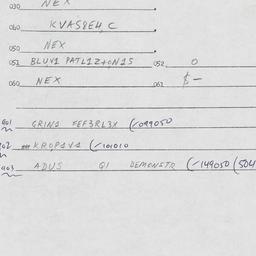 030 NEX
040 KVAS8E4, C
050 NEX
051 BLUV1 PATL1Z4ON1S 052 0
060 NEX 061 $ —
601 GRIND FEF3RL3X (-099050
402 KROPAVA (-101010
403 ADUS Q1 DEMONSTR (-149050 (504